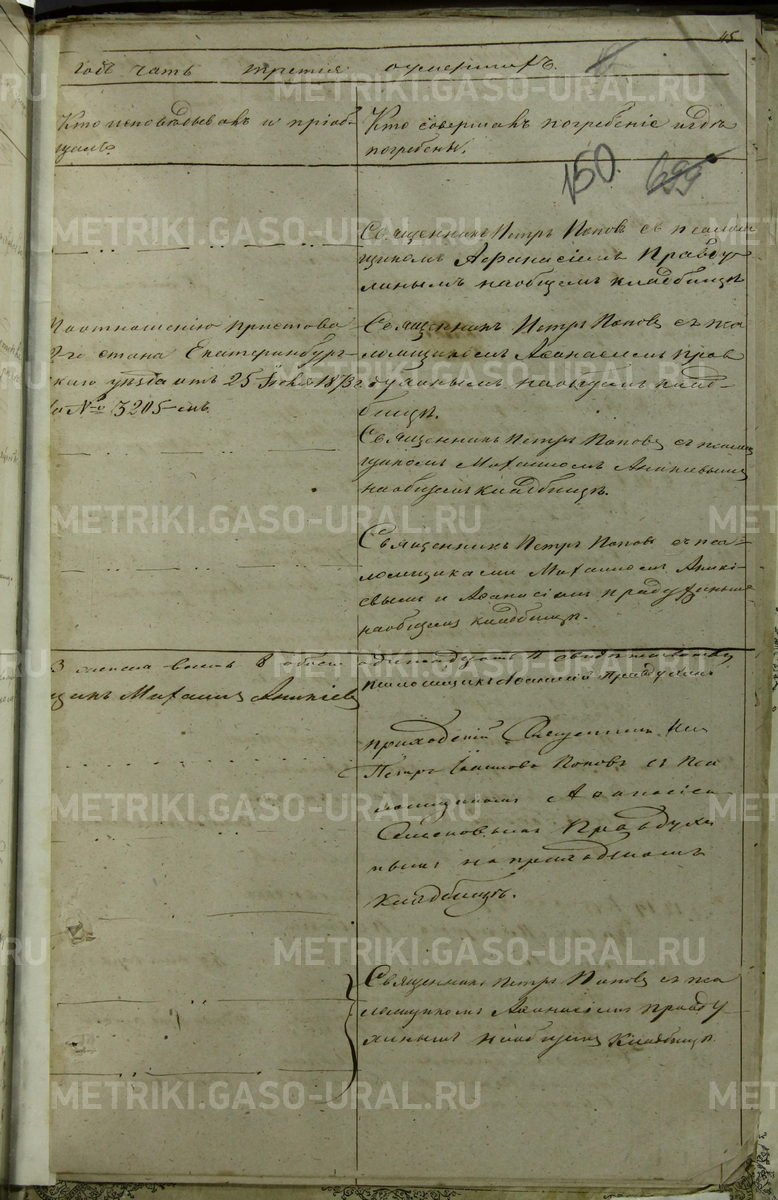 45
годъ часть третия о умершихъ.
Кто исповѣдывалъ и пріоб-
щалъ.
Кто совершалъ погребеніе и гдѣ
погребены.
150. 699
Священникъ Петръ Поповъ съ псалом
щикомъ Афанасіемъ Правду
линымъ на общемъ кладбищѣ
По отношенію пристава
2го стана Екатеринбург-
скаго уѣзда отъ 25 1873 г.
за № 3205-мъ.
Священникъ Петръ Поповъ съ пса
ломщикомъ Аѳанасіемъ Прав
дулинымъ на общемъ клад-
бищѣ.
Священникъ Петръ Поповъ съ псалом
щикомъ Михаиломъ Аникіевымъ
на общемъ кладбищѣ.
Священникъ Петръ Поповъ съ пса-
ломщиками Михаиломъ Аникі-
евымъ и Аѳанасіемъ Правдулинымъ
на общемъ кладбищѣ.
3 женска восемь 8 обоего
одинадцать 11
щикъ Михаилъ Аникіевъ
псаломщикъ Аѳанасій Правдулинъ
приходскій Священникъ
Петръ Поповъ съ пса
ломщикомъ Аѳанасіемъ
Семеновымъ Правдули
нымъ на приходскомъ
кладбищѣ.
Священникъ Петръ Поповъ съ пса
ломщикомъ Аѳанасіемъ Правду
линымъ на общемъ кладбищѣ
METRIKI.GASO-URAL.RU